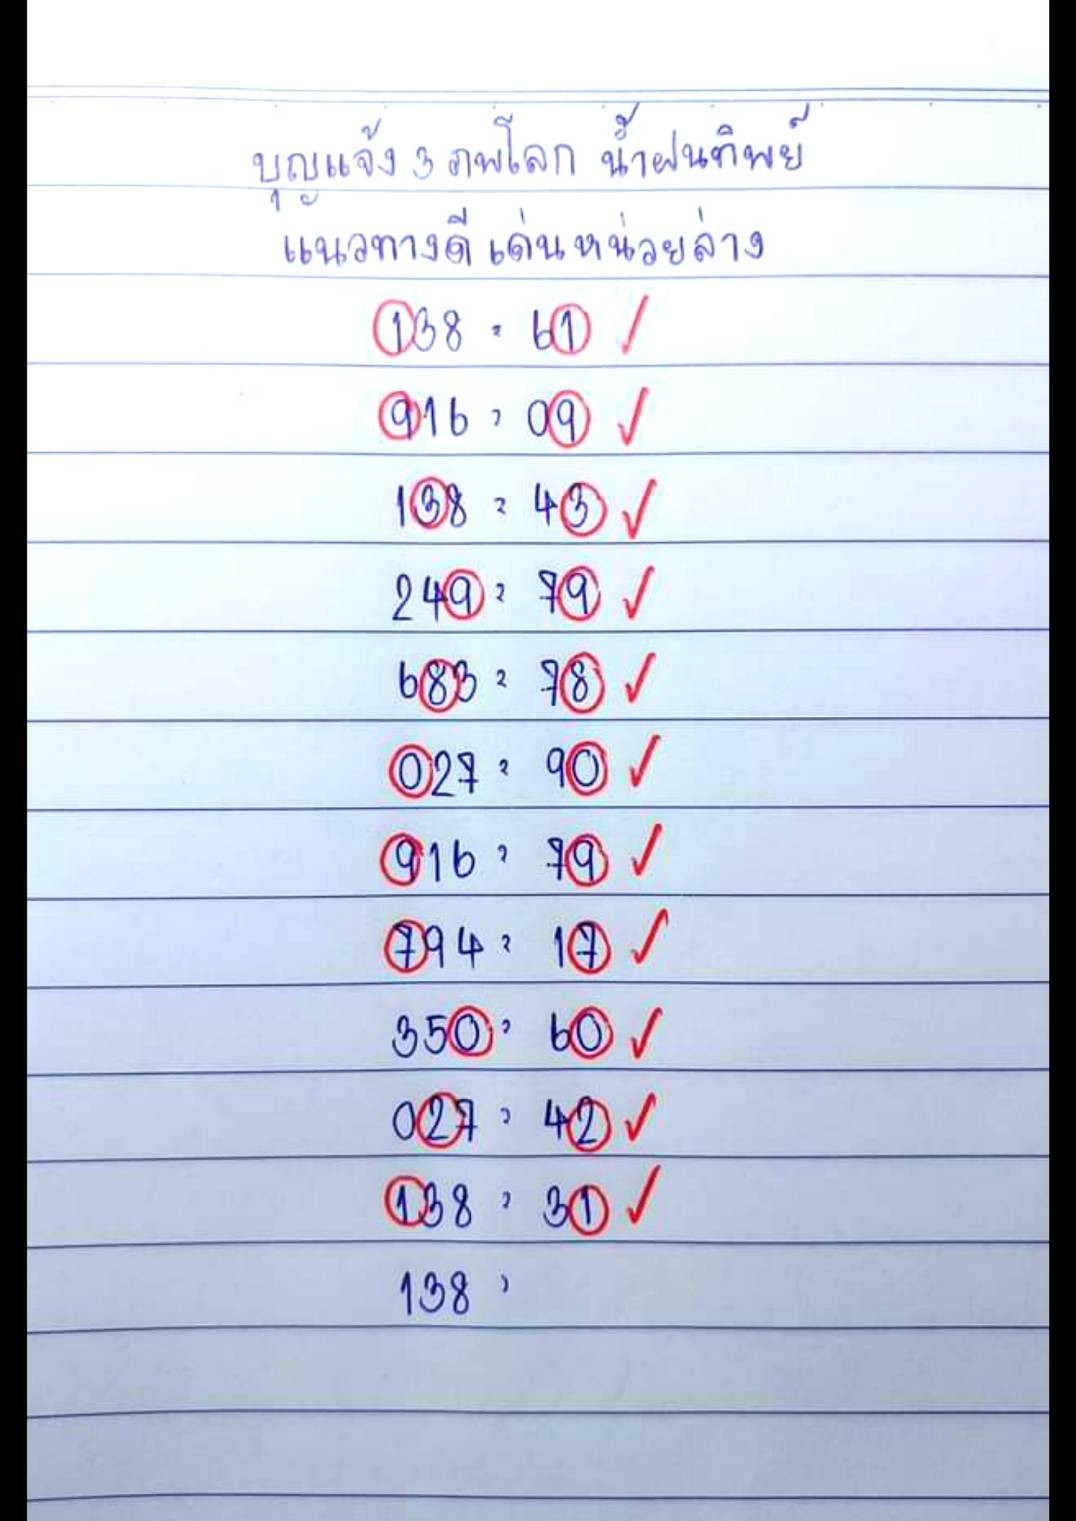 บุญแจ้ง 3 ภพโลก น้ำฝนทิพย์
แนวทางดี เด่นหน่วยล่าง
138 = 61 ✓
916 = 09 ✓
138 = 43 ✓
249 = 79 ✓
683 = 78 ✓
027 = 90 ✓
916 = 79 ✓
794 = 17 ✓
350 = 60 ✓
027 = 42 ✓
138 = 31 ✓
138 =